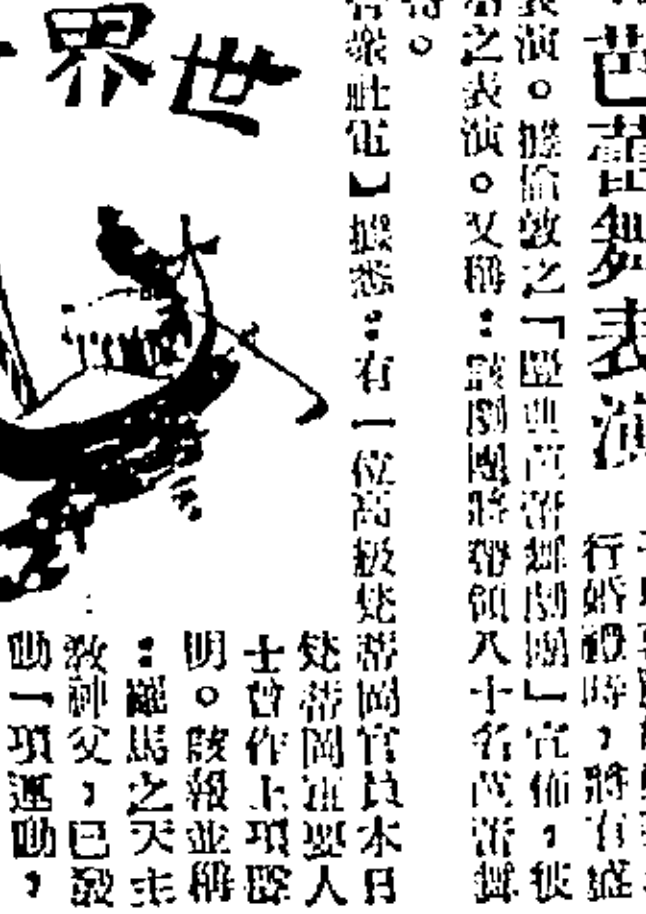 芭蕾舞表演
行婚禮時，將有盛
表演。據倫敦之「盛典芭蕾舞劇團」宣佈，彼
之表演。又稱：該劇團將帶領八十名芭蕾舞
合衆社電】據悉：有一位高級梵蒂岡官員本日
梵蒂岡重要人
士曾作上項聲
明。該報並稱
：羅馬之天主
教神父，已發
動一項運動，
世界